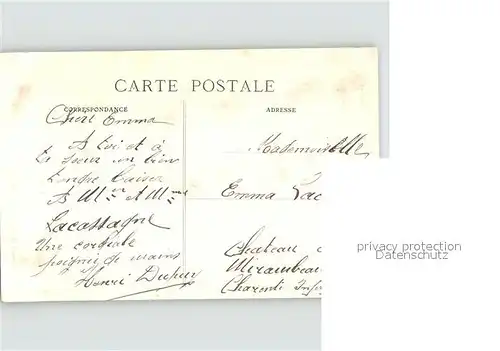 CARTE POSTALE
CORRESPONDANCE
ADRESSE
Chère Emma
A toi et à
ta soeur un bien
tendre baiser
A Mr et Mme
Lacassagne
Une cordiale
poignée de mains
Henri Dupuy
Mademoiselle
Emma Lac
Chateau
Mirambeau
Charente Inf
privacy protection
Datenschutz